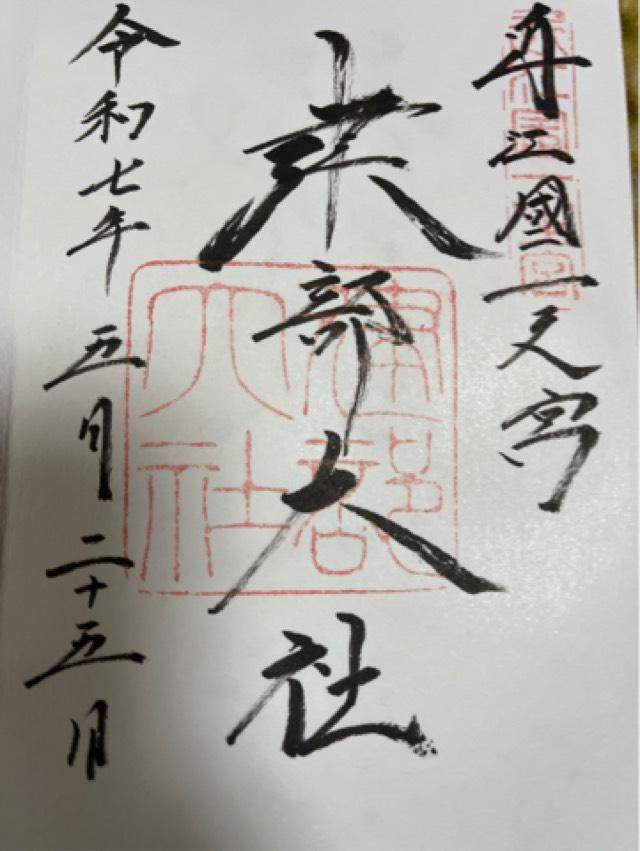 近江國一之宮
建部大社
令和七年 五月二十五日
建部
大社